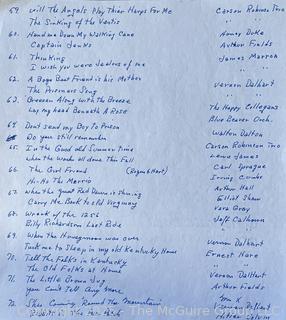 59. Will The Angels Play Their Harps For Me Carson Robison Trio
The Sinking of the Vestris " "
60. Hand me Down My Walking Cane Honey Duke
Captain Jenks Arthur Fields
61. Thinking James Marron
I wish you were Jealous of me " "
62. A Boys Best Friend is his Mother Vernon Dalhart
The Prisoners Song " "
63. Breezen Along With the Breeze The Happy Collegans
Lay my head Beneath A Rose Blue Beaver Orch.
64. Dont send my Boy to Prison Walton Dalton
Do you still remember " "
65. In the Good old Summer time Carson Robinson Trio
When the work all done This Fall Lewis James
66. The Girl Friend Carl Sprague
Hi-Ho The Merrio Irving
67. When the great Red Dawn is shining Arthur Hall
Carry Me Back to old Virginny Elliot Shaw
68. Wreck of the 1256 Vera Gray
Billy Richardsons Last Ride Jeff Calhoun
69. When the Honeymoon was over " "
Take me to Sleep in my old Kentucky Home Vernon Dalhart
70. Tell the Folks in Kentucky Ernest Hare
The Old Folks at Home " "
71. The Little Brown Jug Vernon Dalhart
you Can't Tell Any More Arthur Fields
72. Shes Coming Round The Mountain
Vernon Dalhart
The McGuire Group LLC